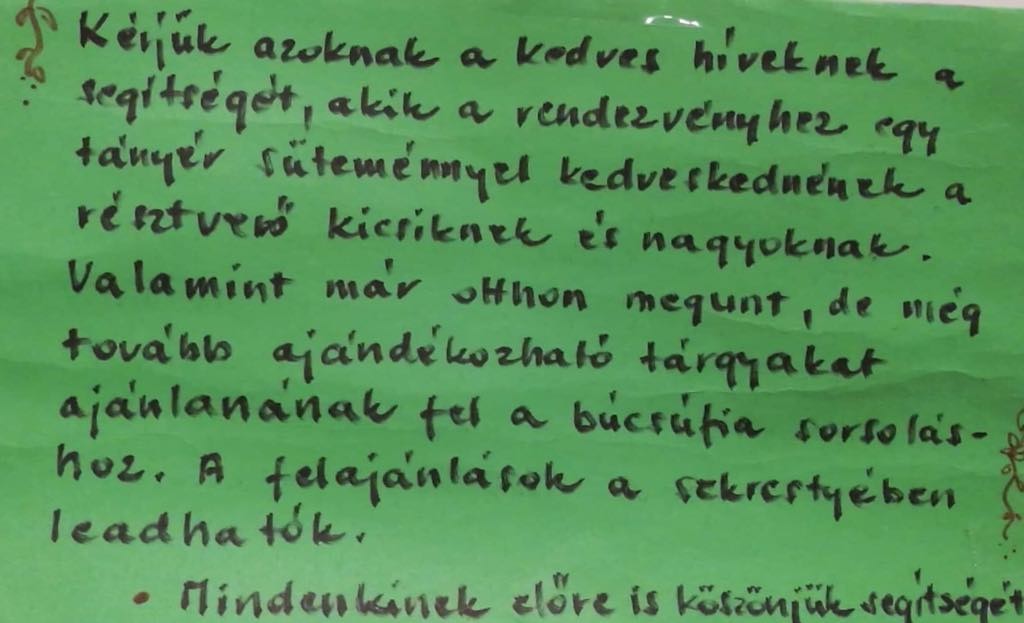 Kérjük azoknak a kedves híveknek a
segítségét, akik a rendezvényhez egy
tányér süteménnyel kedveskednének a
résztvevő kicsiknek és nagyoknak.
Valamint már otthon megunt, de még
tovább ajándékozható tárgyakat
ajánlanának fel a búcsúfia sorsolás-
hoz. A felajánlások a sekrestyében
leadhatók.
• Mindenkinek előre is köszönjük segítségét